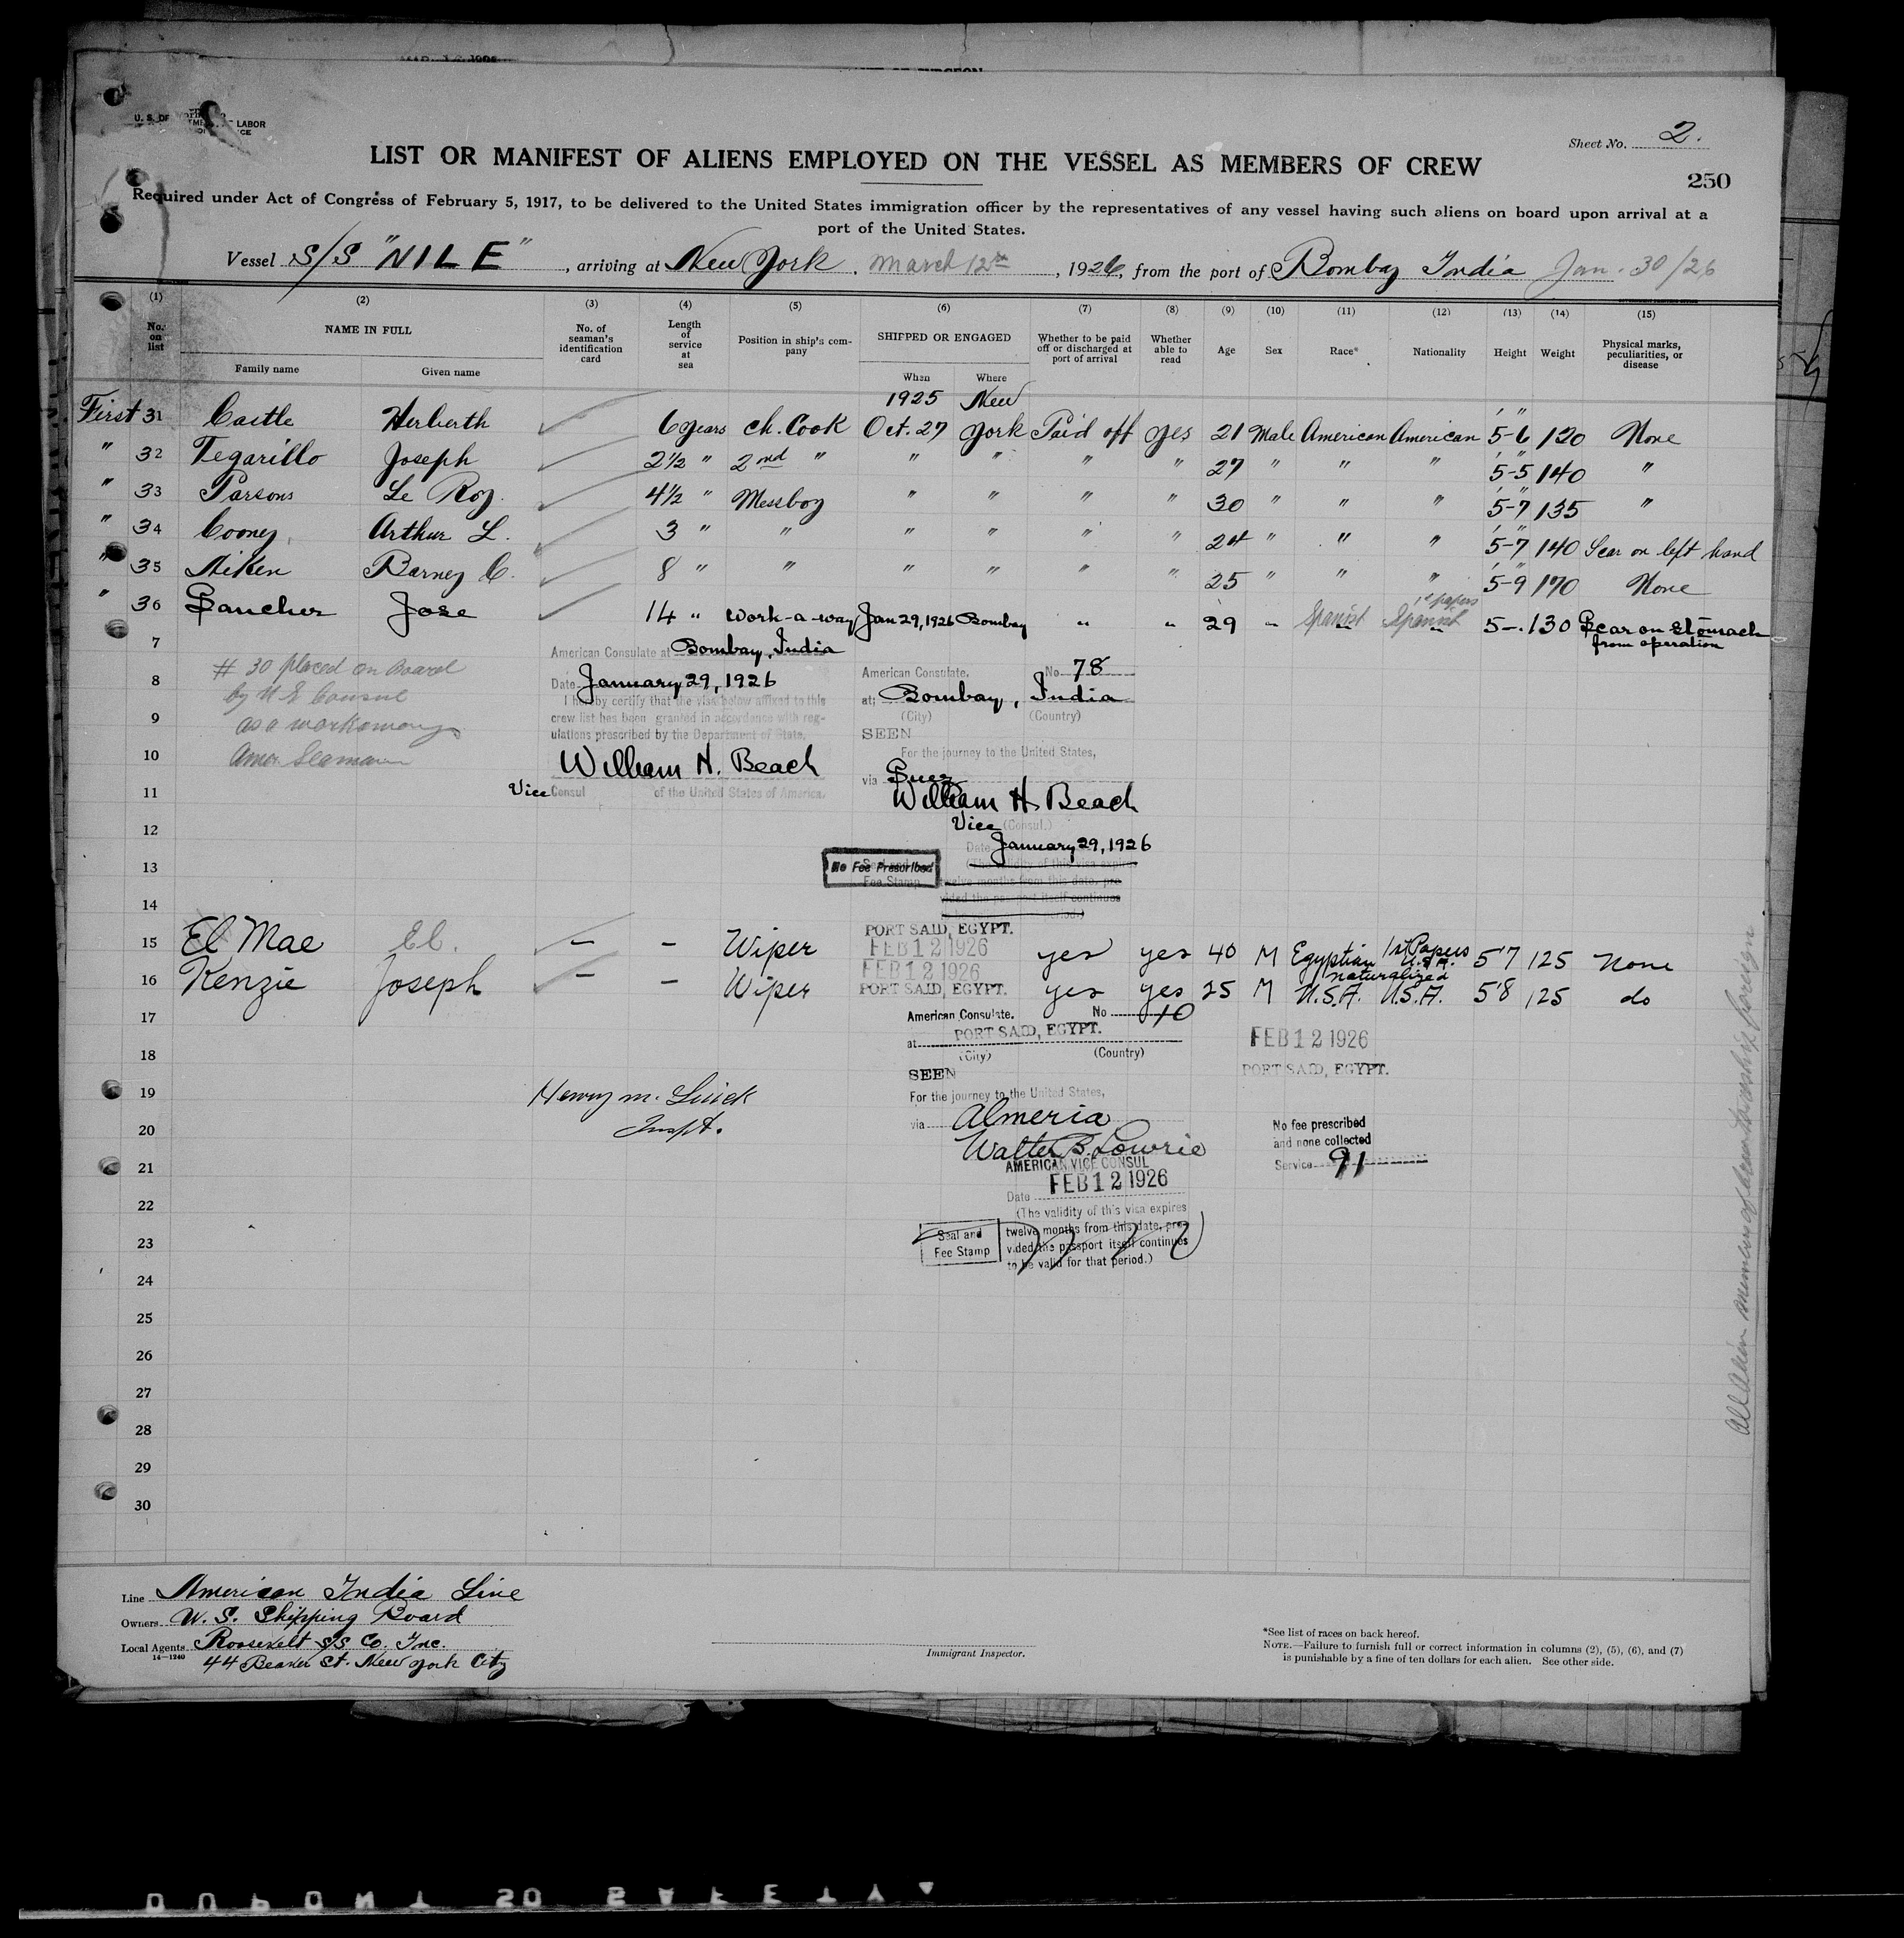 Sheet No. 2.
LIST OR MANIFEST OF ALIENS EMPLOYED ON THE VESSEL AS MEMBERS OF CREW
250
Required under Act of Congress of February 5, 1917, to be delivered to the United States immigration officer by the representatives of any vessel having such aliens on board upon arrival at a
port of the United States.
Vessel S/S "NILE", arriving at New York, March 12th, 1926, from the port of Bombay India Jan. 30/26
(1) (2) (3) (4) (5) (6) (7) (8) (9) (10) (11) (12) (13) (14) (15)
No. on list NAME IN FULL Family name Given name No. of seaman's identification card Length of service at sea Position in ship's company SHIPPED OR ENGAGED When Where Whether to be paid off or discharged at port of arrival Whether able to read Age Sex Race* Nationality Height Weight Physical marks, peculiarities, or disease
1925 New
First 31 Castle Herberth 6 years Ch. Cook Oct. 27 York Paid off yes 21 Male American American 5-6 120 None
" 32 Tegarillo Joseph 2½ " 2nd " " " " " 27 " " " 5-5 140 "
" 33 Parsons Le Roy. 4½ " Messboy " " " " 30 " " " 5-7 135 "
" 34 Cooney, Arthur L. 3 " " " " " " 24 " " " 5-7 140 Scar on left hand
" 35 Aiken Barney C. 8 " " " " " " 25 " " " 5-9 170 None
1st papers
" 36 Sanchez Jose 14 " Work-a-way Jan 29, 1926 Bombay " " 29 " Spanish Spanish 5-. 130 Scar on Stomach
from operation
7
8
9
10
11
12
13
14
# 30 placed on Board
by U S Consul
as a workaway
Amer. Seaman
American Consulate at Bombay, India
Date January 29, 1926
I hereby certify that the visa below affixed to this
crew list has been granted in accordance with reg-
ulations prescribed by the Department of State.
William H. Beach
Vice Consul of the United States of America.
American Consulate. No 78
at; Bombay, India
(City) (Country)
SEEN
For the journey to the United States,
via Suez
William H. Beach
Vice (Consul.)
Date January 29, 1926
No Fee Prescribed
Fee Stamp
(The validity of this visa expires
twelve months from this date, pro-
vided the passport itself continues
PORT SAID, EGYPT.
15 El Mae El. – – Wiper FEB 12 1926 yes yes 40 M Egyptian 1st Papers U.S.A. 5'7 125 None
FEB 12 1926
naturalized
16 Kenzie Joseph – – Wiper PORT SAID, EGYPT. yes yes 25 M U.S.A. U.S.A. 5'8 125 do
17
18
19
20
21
22
23
24
25
26
27
28
29
30
American Consulate. No 10
at PORT SAID, EGYPT.
(City) (Country)
SEEN
For the journey to the United States,
via Almeria
Walter B. Lowrie
AMERICAN VICE CONSUL
Date FEB 12 1926
(The validity of this visa expires
twelve months from this date, pro-
vided the passport itself continues
to be valid for that period.)
Seal and
Fee Stamp
FEB 12 1926
PORT SAID, EGYPT.
No fee prescribed
and none collected
Service 91
Henry M.
Inspt.
Line American India Line
Owners U. S. Shipping Board
Local Agents Roosevelt S/S Co. Inc.
14—1240
44 Beaver St. New York City
Immigrant Inspector.
*See list of races on back hereof.
NOTE.—Failure to furnish full or correct information in columns (2), (5), (6), and (7)
is punishable by a fine of ten dollars for each alien. See other side.